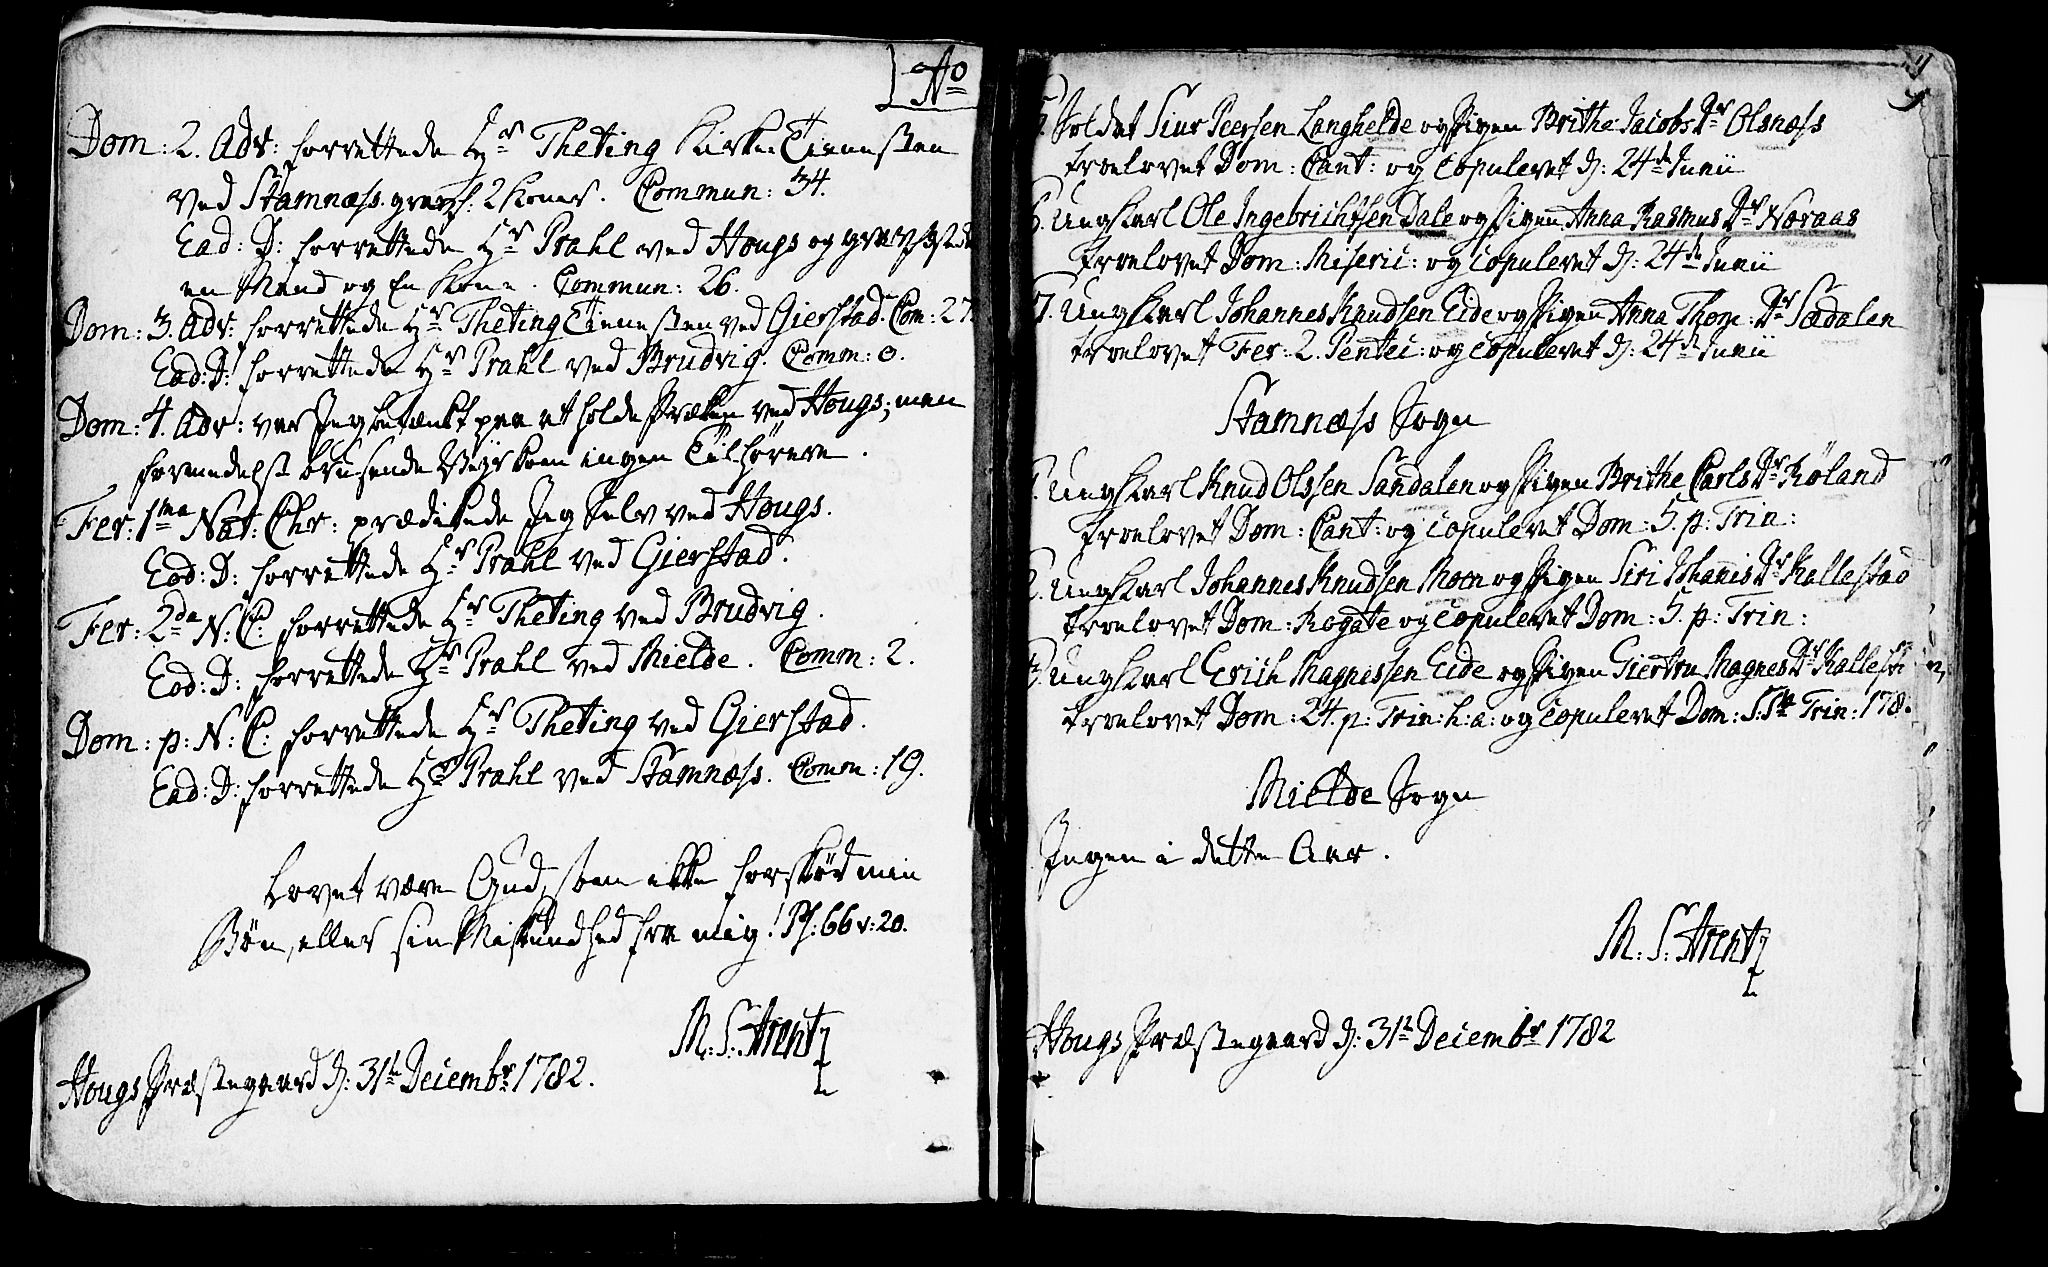 Ao
Dom: 2. Adv: forrettede Hr Theting Kirke Tienesten
ved Stamnæss. græsf: 2 Koner. Commun: 34.
Ead: D: forrettede Hr Prahl ved Hougs og
en Mand og En Kone. Commun: 26.
Dom: 3. Adv: forrettede Hr Theting Tienesten ved Gierstad. Com: 27.
Ead: D: forrettede Hr Prahl ved Brudvig. Comm: 0.
Dom: 4. Adv: var Jeg betænkt paa at holde Præken ved Hougs; men
formedelst brusende Vejr kom ingen Tilhørere.
Fer: 1ma Nat: Chr: prædikede Jeg Selv ved Hougs.
Eod: D: forrettede Hr Prahl ved Gierstad.
Fer: 2da N: C: forrettede Hr Theting ved Brudvig.
Eod: D: forrettede Hr Prahl ved Mielde. Comm: 2.
Dom: p: N: C: forrettede Hr Theting ved Gierstad.
Ead: D: forrettede Hr Prahl ved Stamnæss. Comm: 19.
Lovet være Gud, som ikke forskød min
Bøn, eller sin Miskundhed fra mig! Ps: 66 v: 20.
M: S: Arentz
Hougs Præstegaard d: 31te Decembr 1782.
5. Soldat Siur Peersen Langhelde og Pigen Brithe Jacobs Dr Olsnæss
troelovet Dom: Cant: og copuleret d: 24de Junii
6. Ung Karl Ole Ingebrichtsen Dale og Pigen Anna Rasmus Dr Næraas
troelovet Dom: Miseric: og copuleret d: 24de Junii
7. Ung Karl Johannes Knudsen Eide og Pigen Anna Thom: Dr Sædalen
troelovet Fer: 2. Pentec: og copuleret d: 24de Junii
Stamnæss Sogn
1. Ung Karl Knud Olssen Sandalen og Pigen Brithe Carls Dr Køland
troelovet Dom: Cant: og copuleret Dom: 5. p: Trin:
2. Ung Karl Johannes Knudsen Moen og Pigen Siri Johanis Dr Kallestad
troelovet Dom: Rogate og copuleret Dom: 5. p: Trin:
3. Ung Karl Erich Magnessen Eide og Pigen Giertru Magnes Dr Kallest
troelovet Dom: 24. p: Trin: h: a: og copuleret Dom: S: Stæ Trin: 178
Mielde Sogn
Ingen i dette Aar.
M: S: Arentz
Hougs Præstegaard d: 31te Decembr 1782